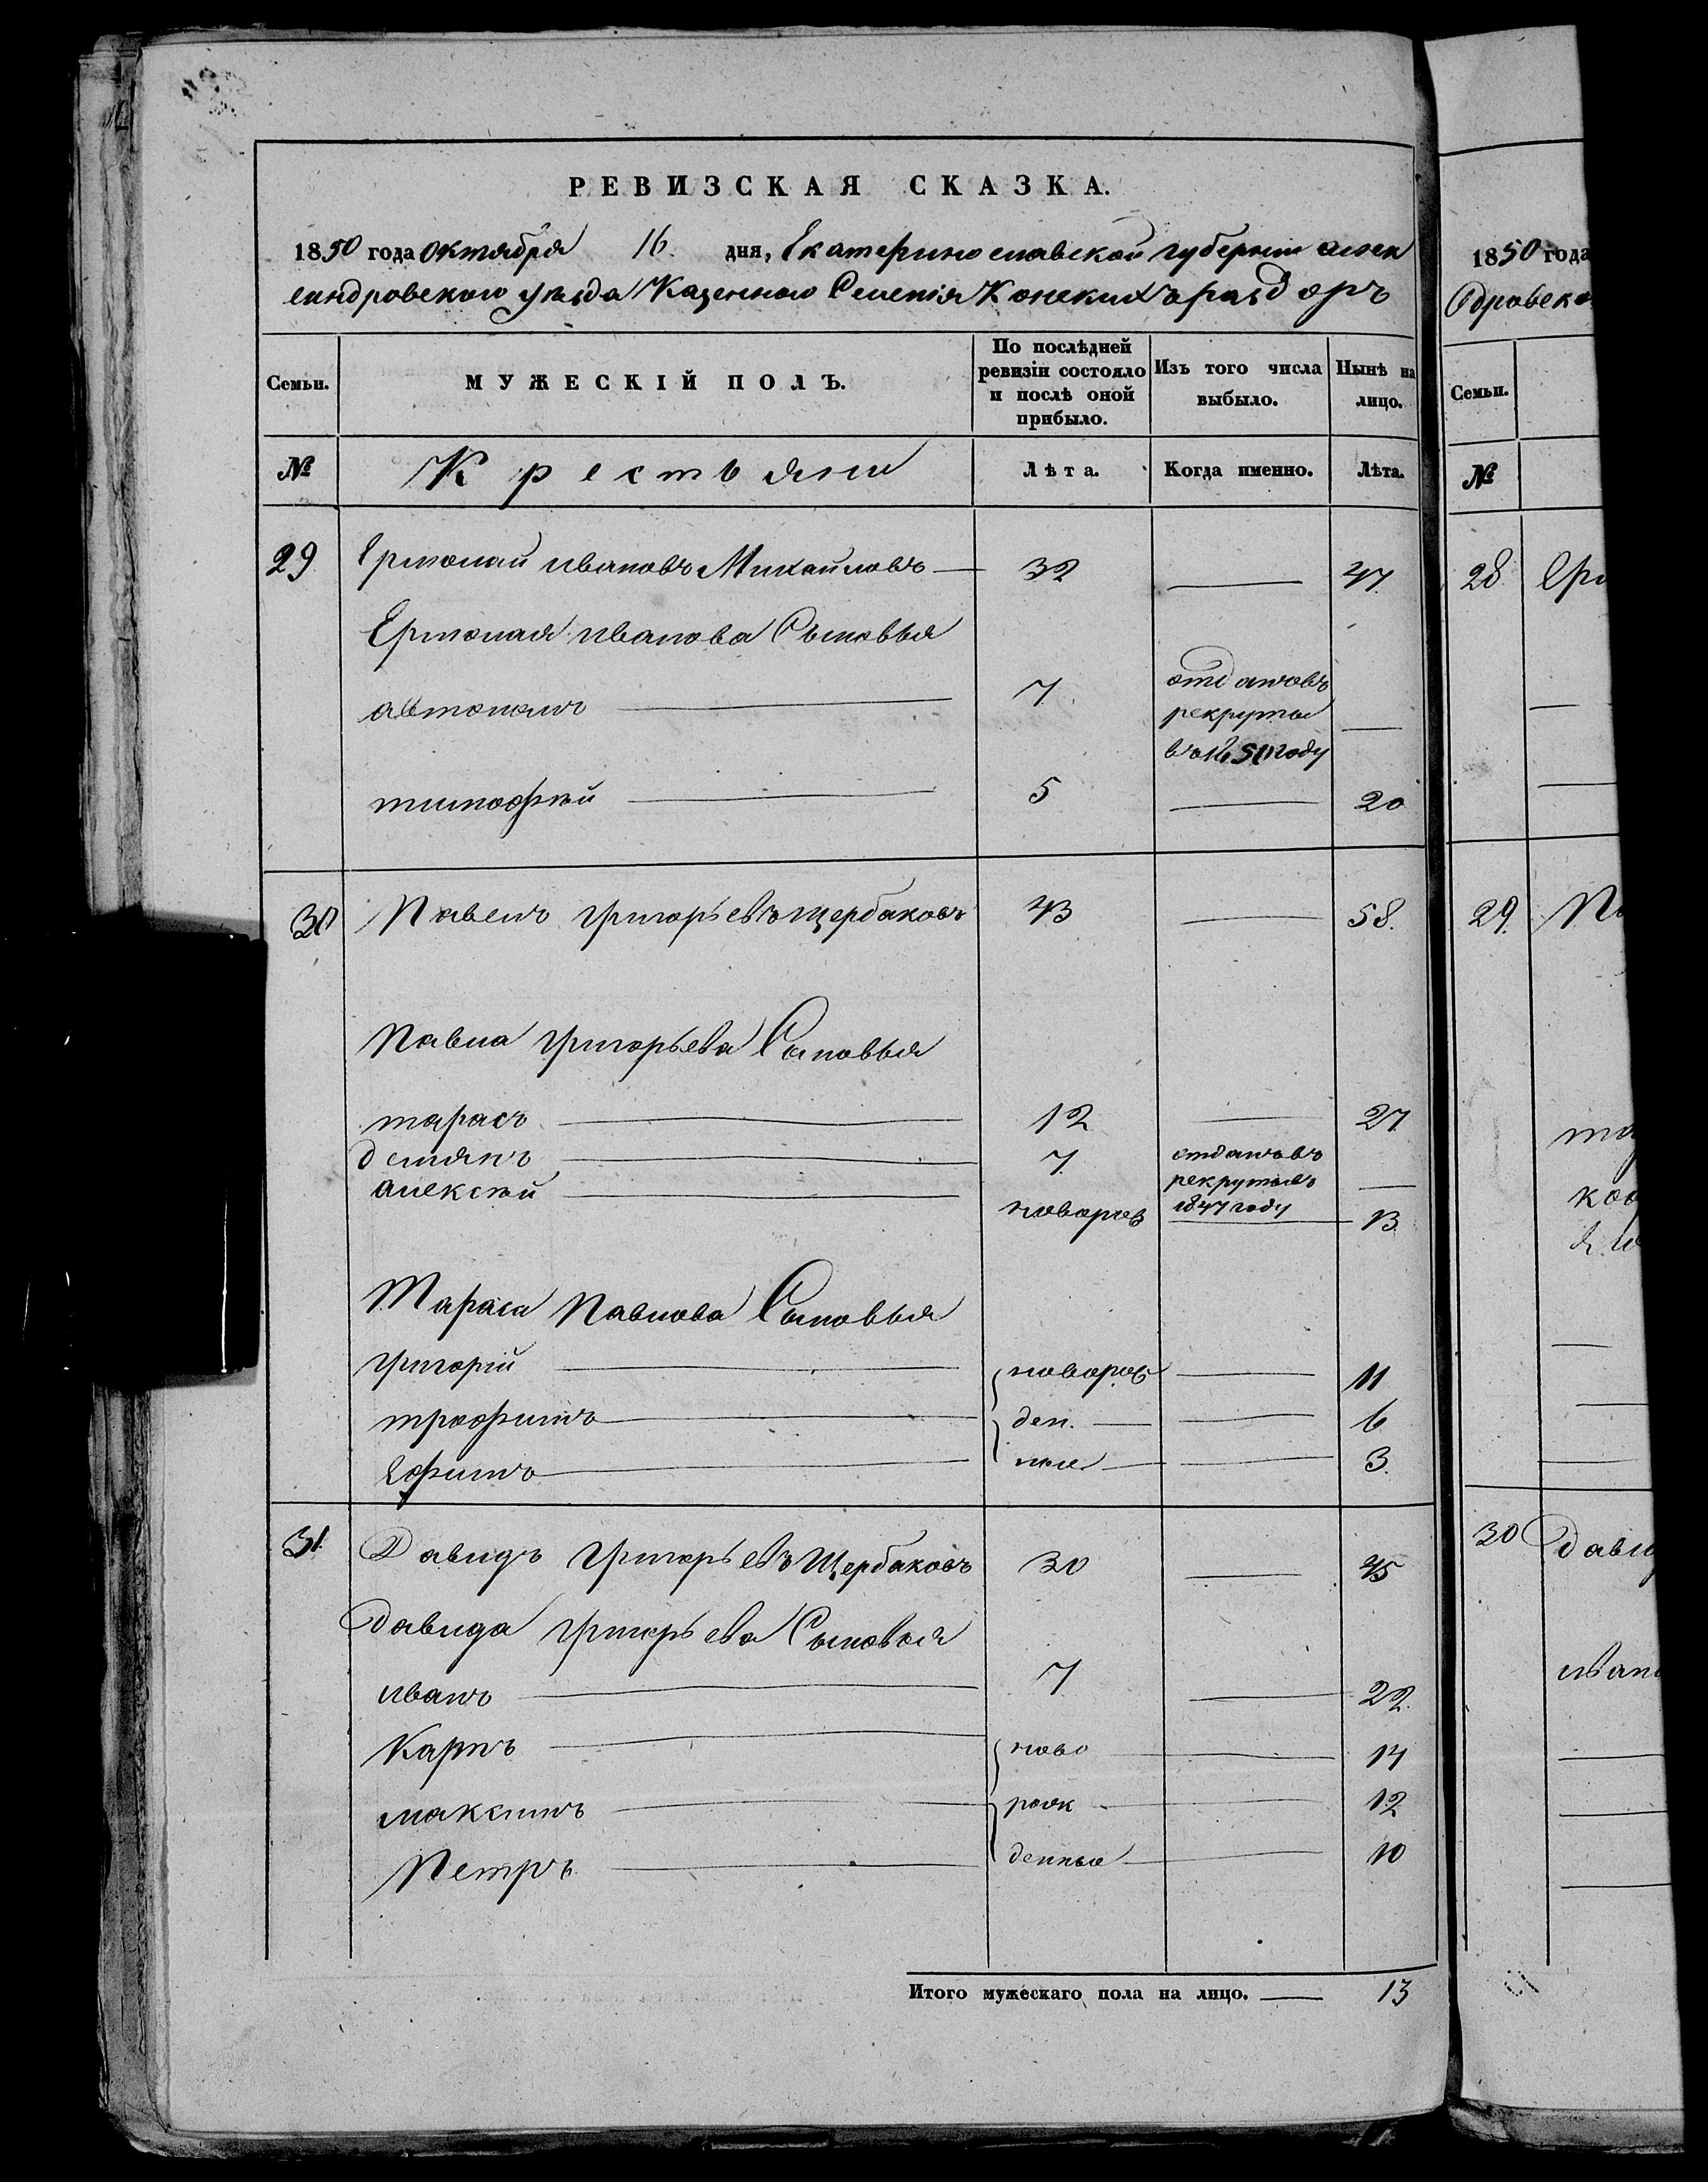 РЕВИЗСКАЯ СКАЗКА.
1850 года Октября 16 дня, Екатеринославской губернии алек
сандровского уѣзда Казенного Селенія Конскихъ раздоръ
Семьи. МУЖЕСКІЙ ПОЛЪ. По послѣдней ревизіи состояло и послѣ оной прибыло. Изъ того числа выбыло. Нынѣ на лицо.
№ Крестьяни Лѣта. Когда именно. Лѣта.
29 Ермолай ивановъ Михайловъ — 32 — 47
Ермолая иванова Сыновья
автономъ — 7 отданъ въ рекруты въ 1850 году —
тимофѣй — 5 — 20
30 Павелъ григорьевъ щербаковъ 43 — 58.
Павла григорьева Сыновья
тарасъ — 12 — 27
демянъ — 7 отданъ въ рекруты въ 1847 году —
алексѣй — новорож — 13
Тараса Павлова Сыновья
григорій — новорож — 11
трофимъ — ден. — 6
Ефимъ — ные — 3.
31 Давидъ григорьевъ Щербаковъ 30 — 45
Давида григорьева Сыновья
иванъ — 7 — 22.
Карпъ — ново — 14
максимъ — рож — 12
Петръ — денные — 10
Итого мужескаго пола на лицо. — 13
1850 года
Семьи.
№
28
29.
30 Давид
иван